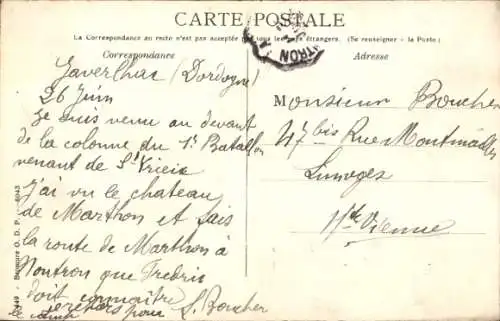 CARTE POSTALE
La Correspondance au recto n'est pas acceptée par tous les pays étrangers. (Se renseigner à la Poste)
Correspondance
Adresse
TRON
Javerlhac (Dordogne)
26 Juin
Je suis venu au devant
de la colonne du 1er Bataillon
venant de St Yrieix
J'ai vu le chateau
de Marthon et fais
la route de Marthon à
Nontron que Frédéric
doit connaître
le camp pour
L. Boucher
Monsieur Boucher
47 bis Rue Montmailler
Limoges
Hte Vienne